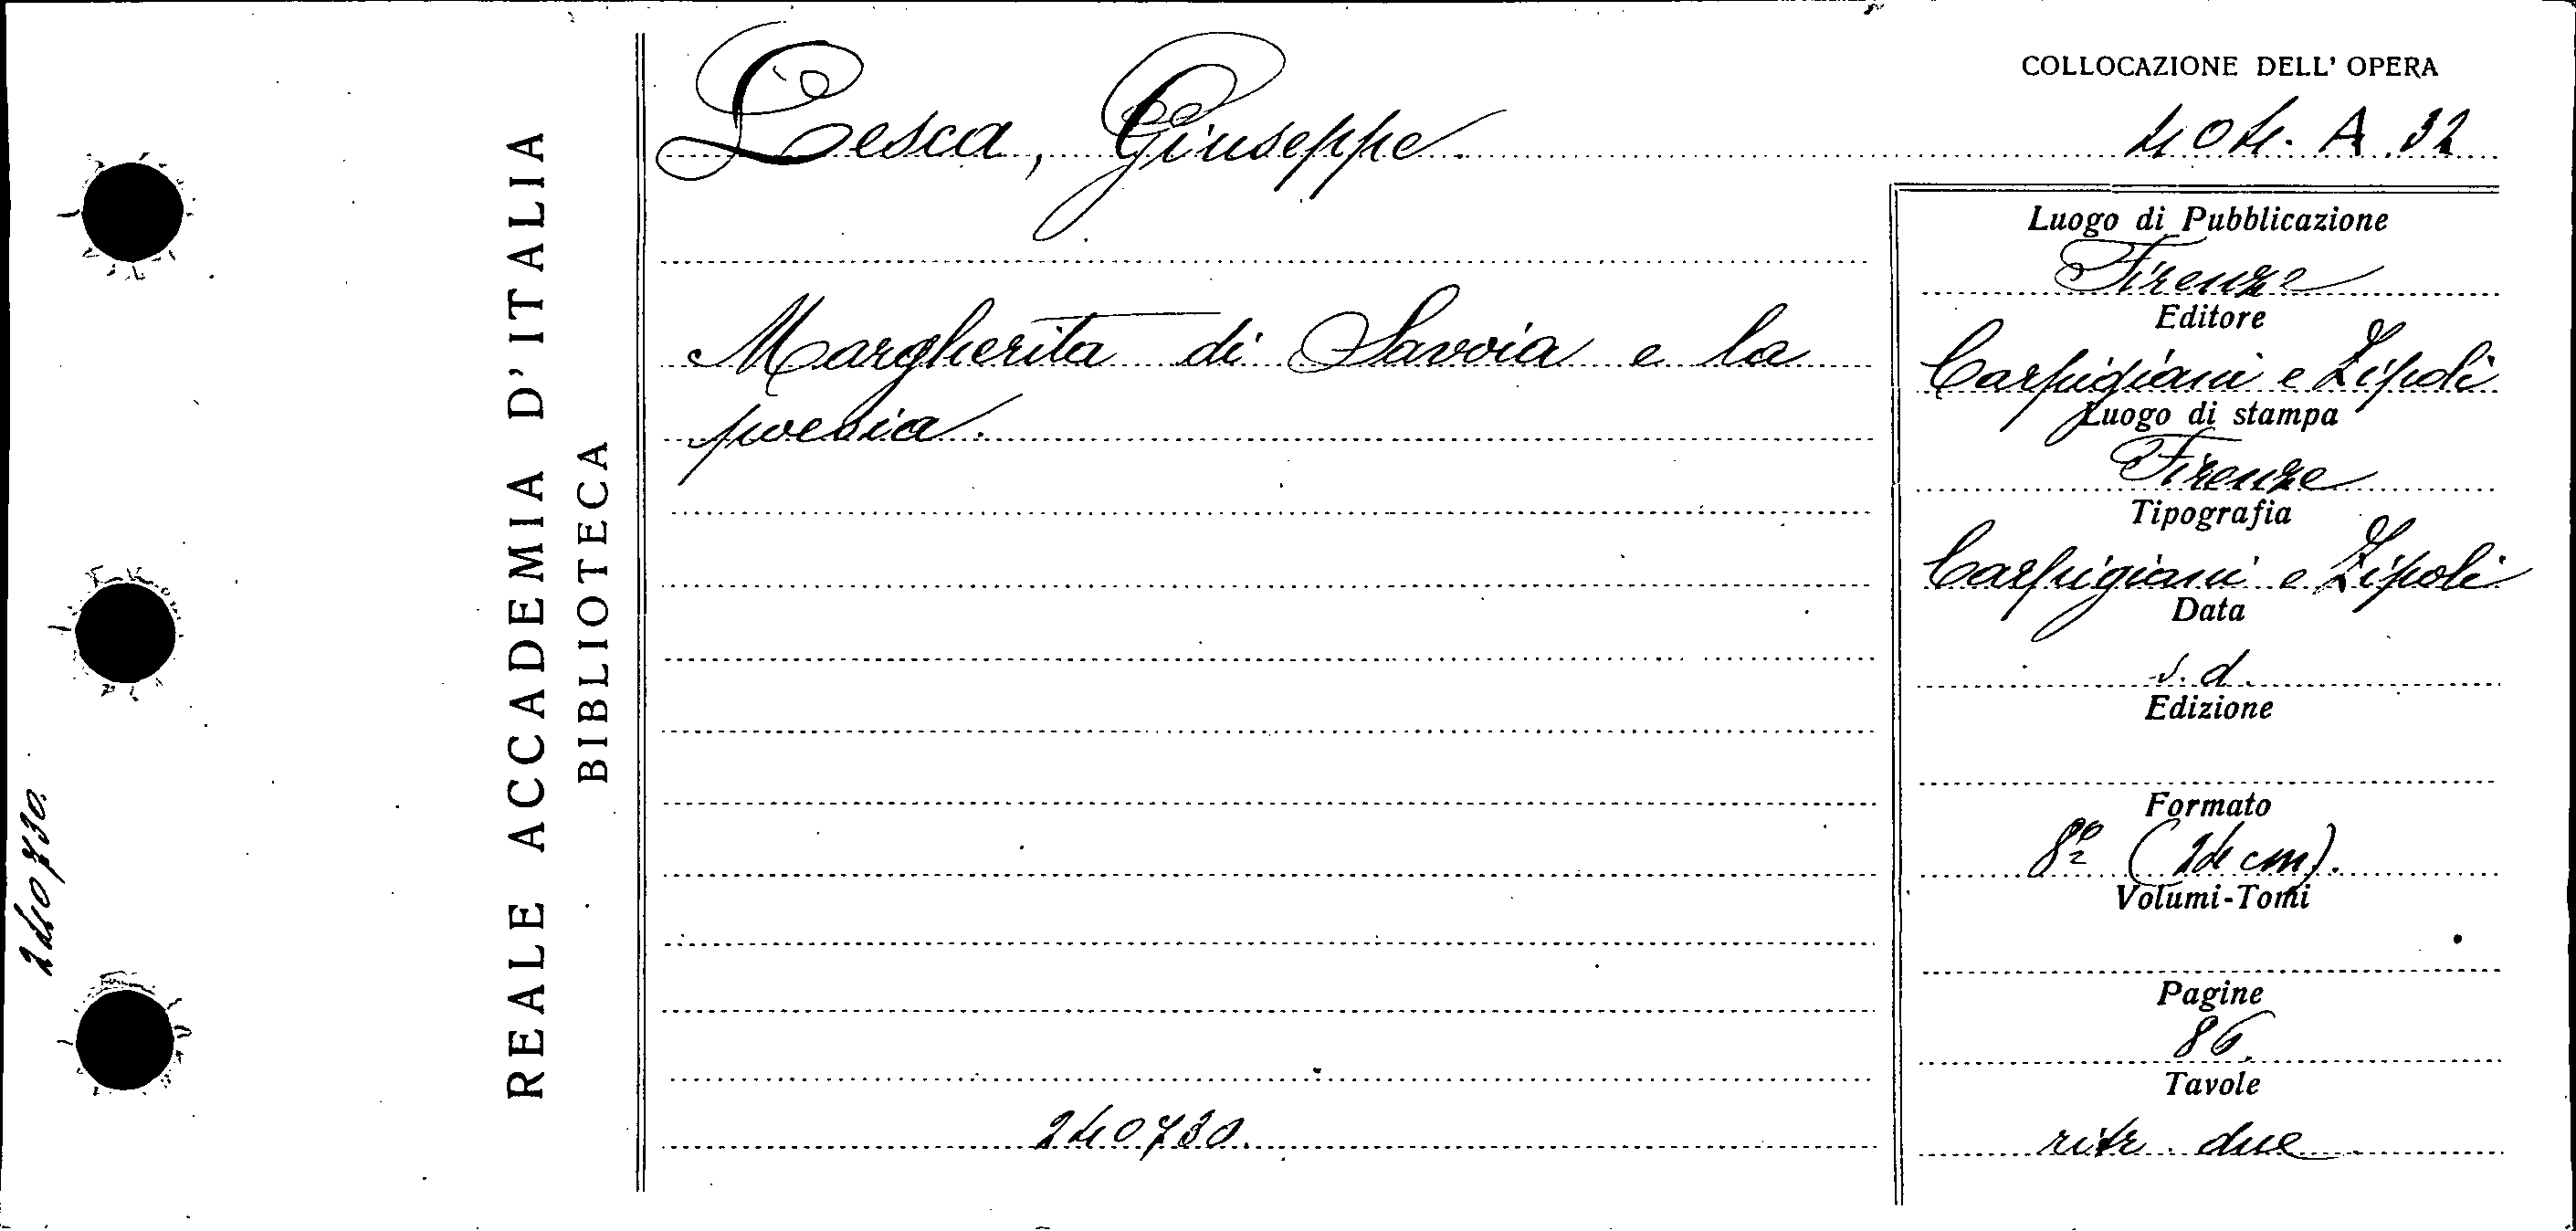 REALE ACCADEMIA D'ITALIA
BIBLIOTECA
240730.
Lesca, Giuseppe.
Margherita di Savoia e la
poesia.
240730.
COLLOCAZIONE DELL' OPERA
404. A. 32
Luogo di Pubblicazione
Firenze
Editore
Carpigiani e Zipoli
Luogo di stampa
Firenze
Tipografia
Carpigiani e Zipoli
Data
s. d.
Edizione
Formato
8º (24 cm).
Volumi-Tomi
Pagine
86.
Tavole
ritr. due.